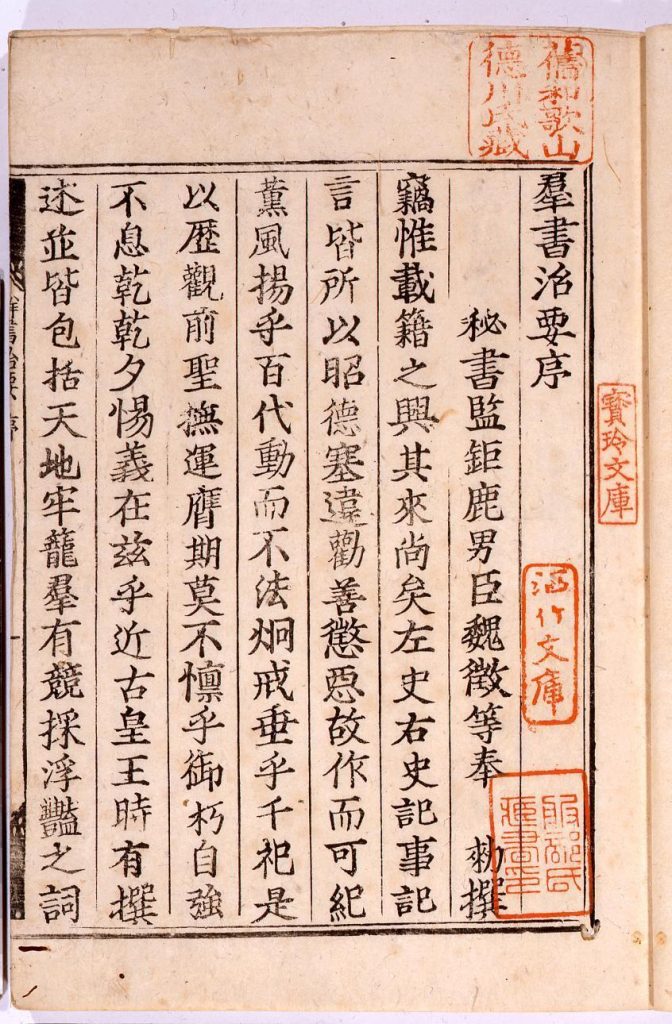 羣書治要序
秘書監鉅鹿男臣魏徵等奉　勑撰
竊惟載籍之興其來尚矣左史右史記事記
言皆所以昭德塞違勸善懲惡故作而可紀
薰風揚乎百代動而不法炯戒垂乎千祀是
以歷觀前聖撫運膺期莫不懍乎御朽自強
不息乾乾夕惕義在茲乎近古皇王時有撰
述並皆包括天地牢籠羣有競採浮豔之詞
舊和歌山
德川氏藏
寶玲文庫
酒竹文庫
服部氏